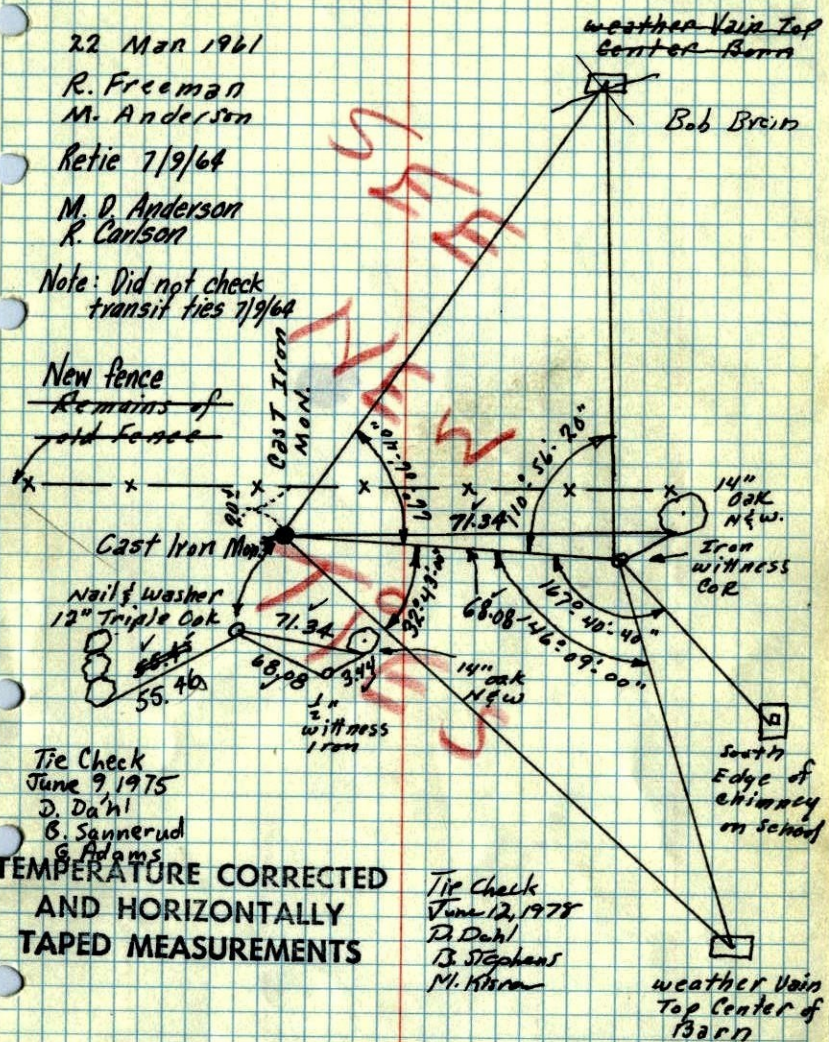 22 Mar 1961
R. Freeman
M. Anderson
Retie 7/9/64
M. D. Anderson
R. Carlson
Note: Did not check
transit ties 7/9/64
New fence
Remains of
old Fence
weather Vain Top
Center Barn
Bob Brein
SEE
NEW
TIES
Cast Iron
MON.
20±
Cast Iron Mon.
110°-56'-20"
71.34
14"
Oak
N & W.
Iron
wittness
COR
32°-43'-00"
68.08
146°-09'-00"
167°-40'-40"
Nail & Washer
12" Triple Oak
55.46
71.34
68.08
3.44
14" oak
N & W
1/2"
wittness
Iron
South
Edge of
chimney
on School
Tie Check
June 9, 1975
D. Dahl
B. Sannerud
G. Adams
TEMPERATURE CORRECTED
AND HORIZONTALLY
TAPED MEASUREMENTS
Tie Check
June 12, 1978
D. Dahl
B. Stephens
weather Vain
Top Center of
Barn